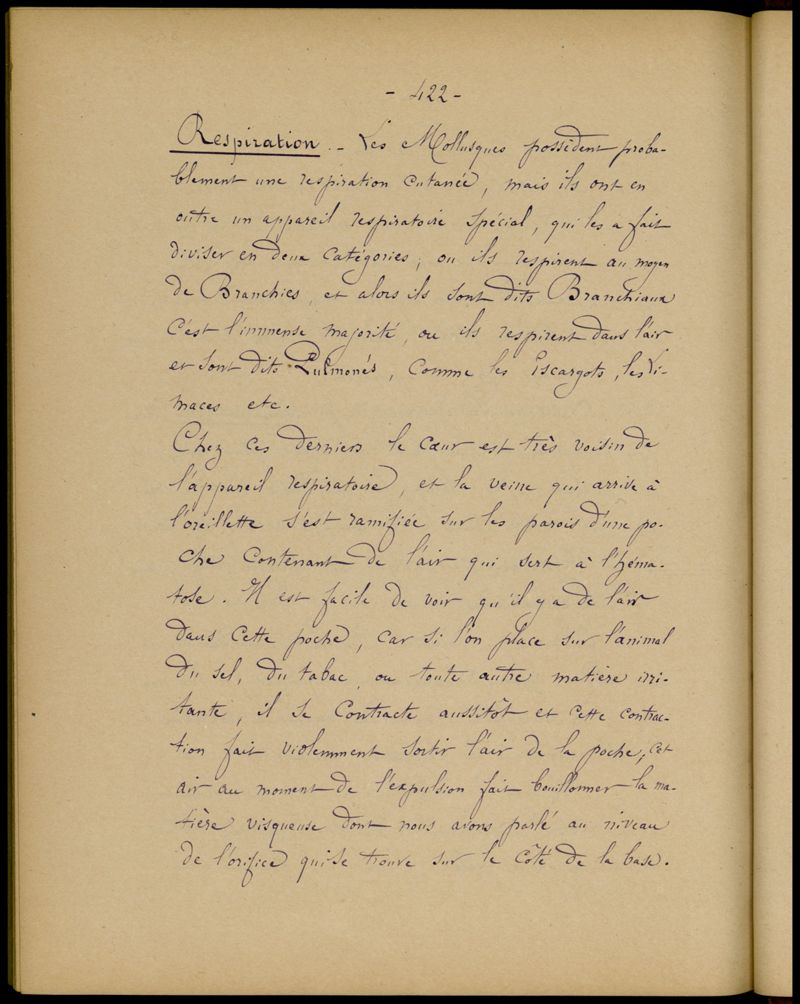 - 422 -
Respiration. - Les Mollusques possèdent proba-
blement une respiration cutanée, mais ils ont en
outre un appareil respiratoire spécial, qui les a fait
diviser en deux catégories, ou ils respirent au moyen
de Branchies, et alors ils sont dits Branchiaux
c'est l'immense majorité, ou ils respirent dans l'air
et sont dits Pulmonés, comme les Escargots, les Li-
maces etc.
Chez ces derniers le cœur est très voisin de
l'appareil respiratoire, et la veine qui arrive à
l'oreillette s'est ramifiée sur les parois d'une po-
che contenant de l'air qui sert à l'héma-
tose. Il est facile de voir qu'il y a de l'air
dans cette poche, car si l'on place sur l'animal
du sel, du tabac, ou toute autre matière irri-
tante, il se contracte aussitôt et cette contrac-
tion fait violemment sortir l'air de la poche, cet
air au moment de l'expulsion fait bouillonner la ma-
tière visqueuse dont nous avons parlé au niveau
de l'orifice qui se trouve sur le côté de la base.